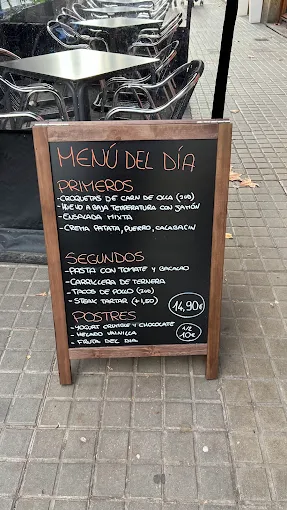 MENÚ DEL DÍA
PRIMEROS
-CROQUETAS DE CARN DE OLLA (3UD)
-HUEVO A BAJA TEMPERATURA CON JAMÓN
-ENSALADA MIXTA
-CREMA PATATA, PUERRO, CALABACIN
SEGUNDOS
-PASTA CON TOMATE Y BACALAO
-CARRILLERA DE TERNERA
-TACOS DE POLLO (2UD)
-STEAK TARTAR (+1,50)
14,90€
POSTRES
-YOGURT CRUMBLE Y CHOCOLATE
-HELADO VAINILLA
-FRUTA DEL DIA
1/2
10€